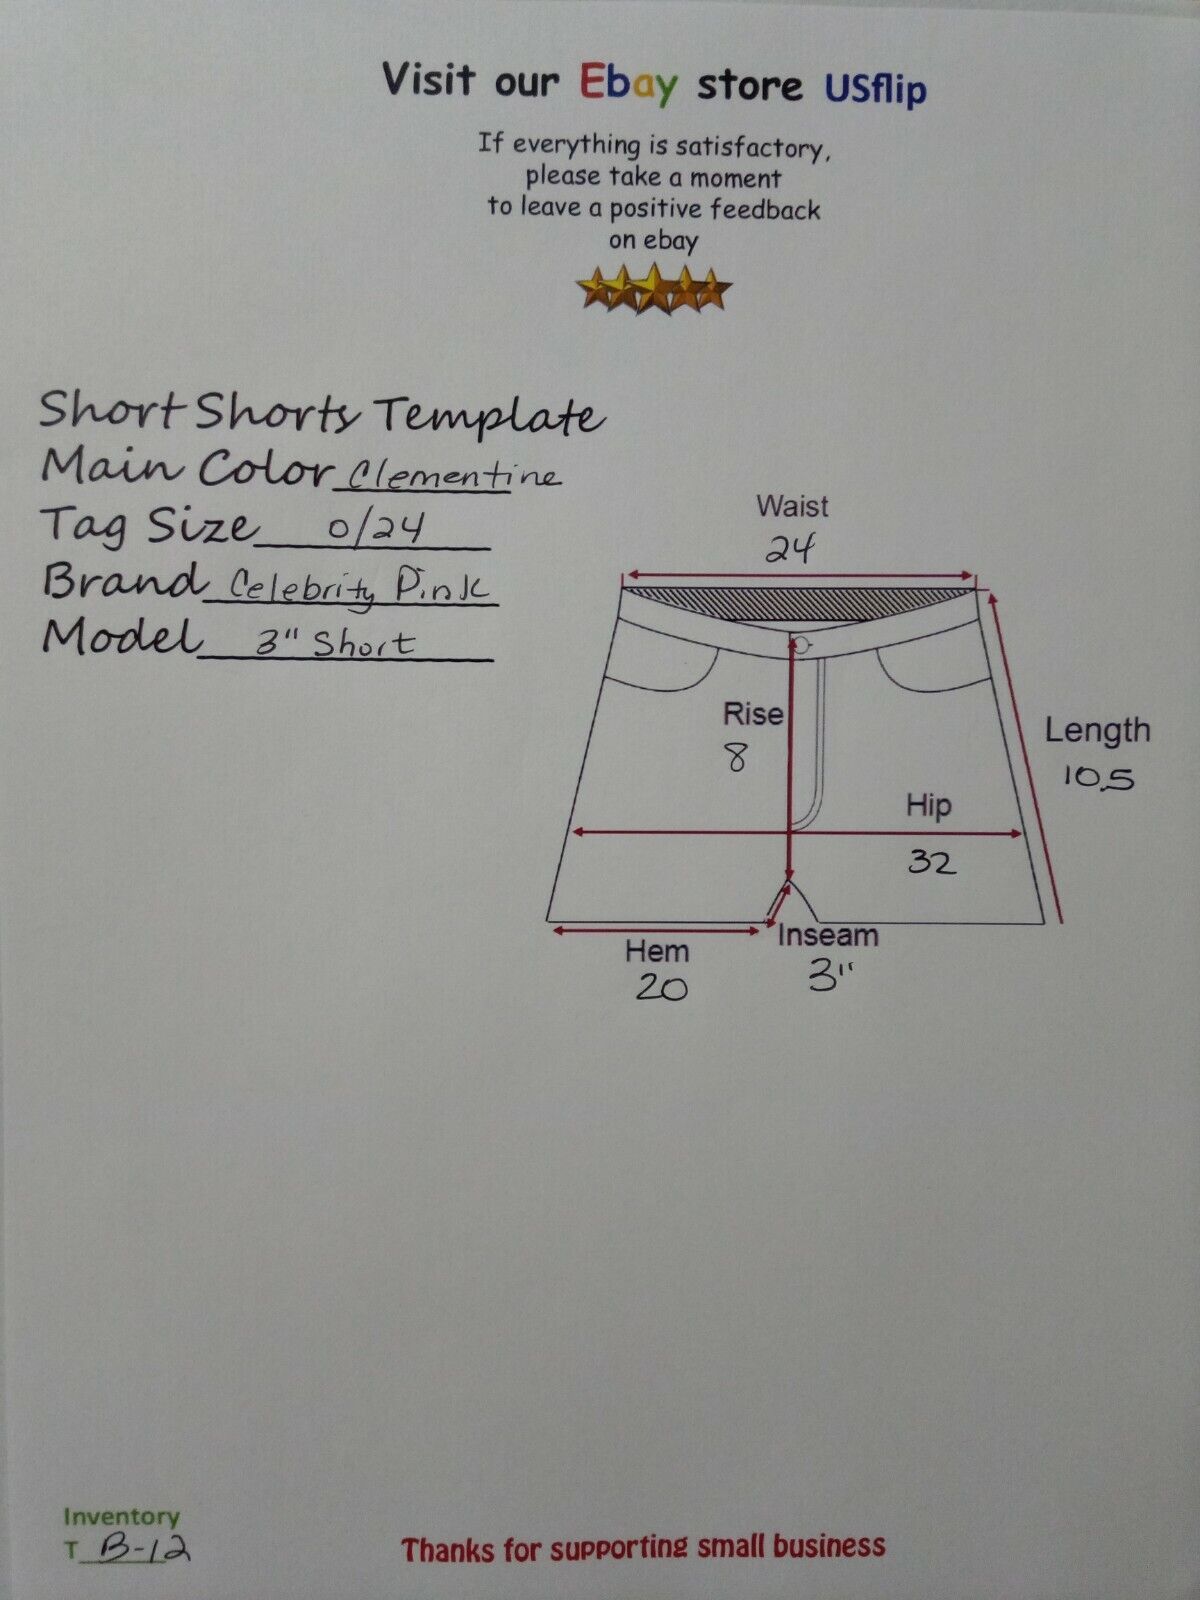 Visit our Ebay store USflip
If everything is satisfactory,
please take a moment
to leave a positive feedback
on ebay
Short Shorts Template
Main Color Clementine
Tag Size 0/24
Brand Celebrity Pink
Model 3" Short
Waist
24
Rise
8
Length
10.5
Hip
32
Hem
20
Inseam
3"
Inventory
T B-12
Thanks for supporting small business